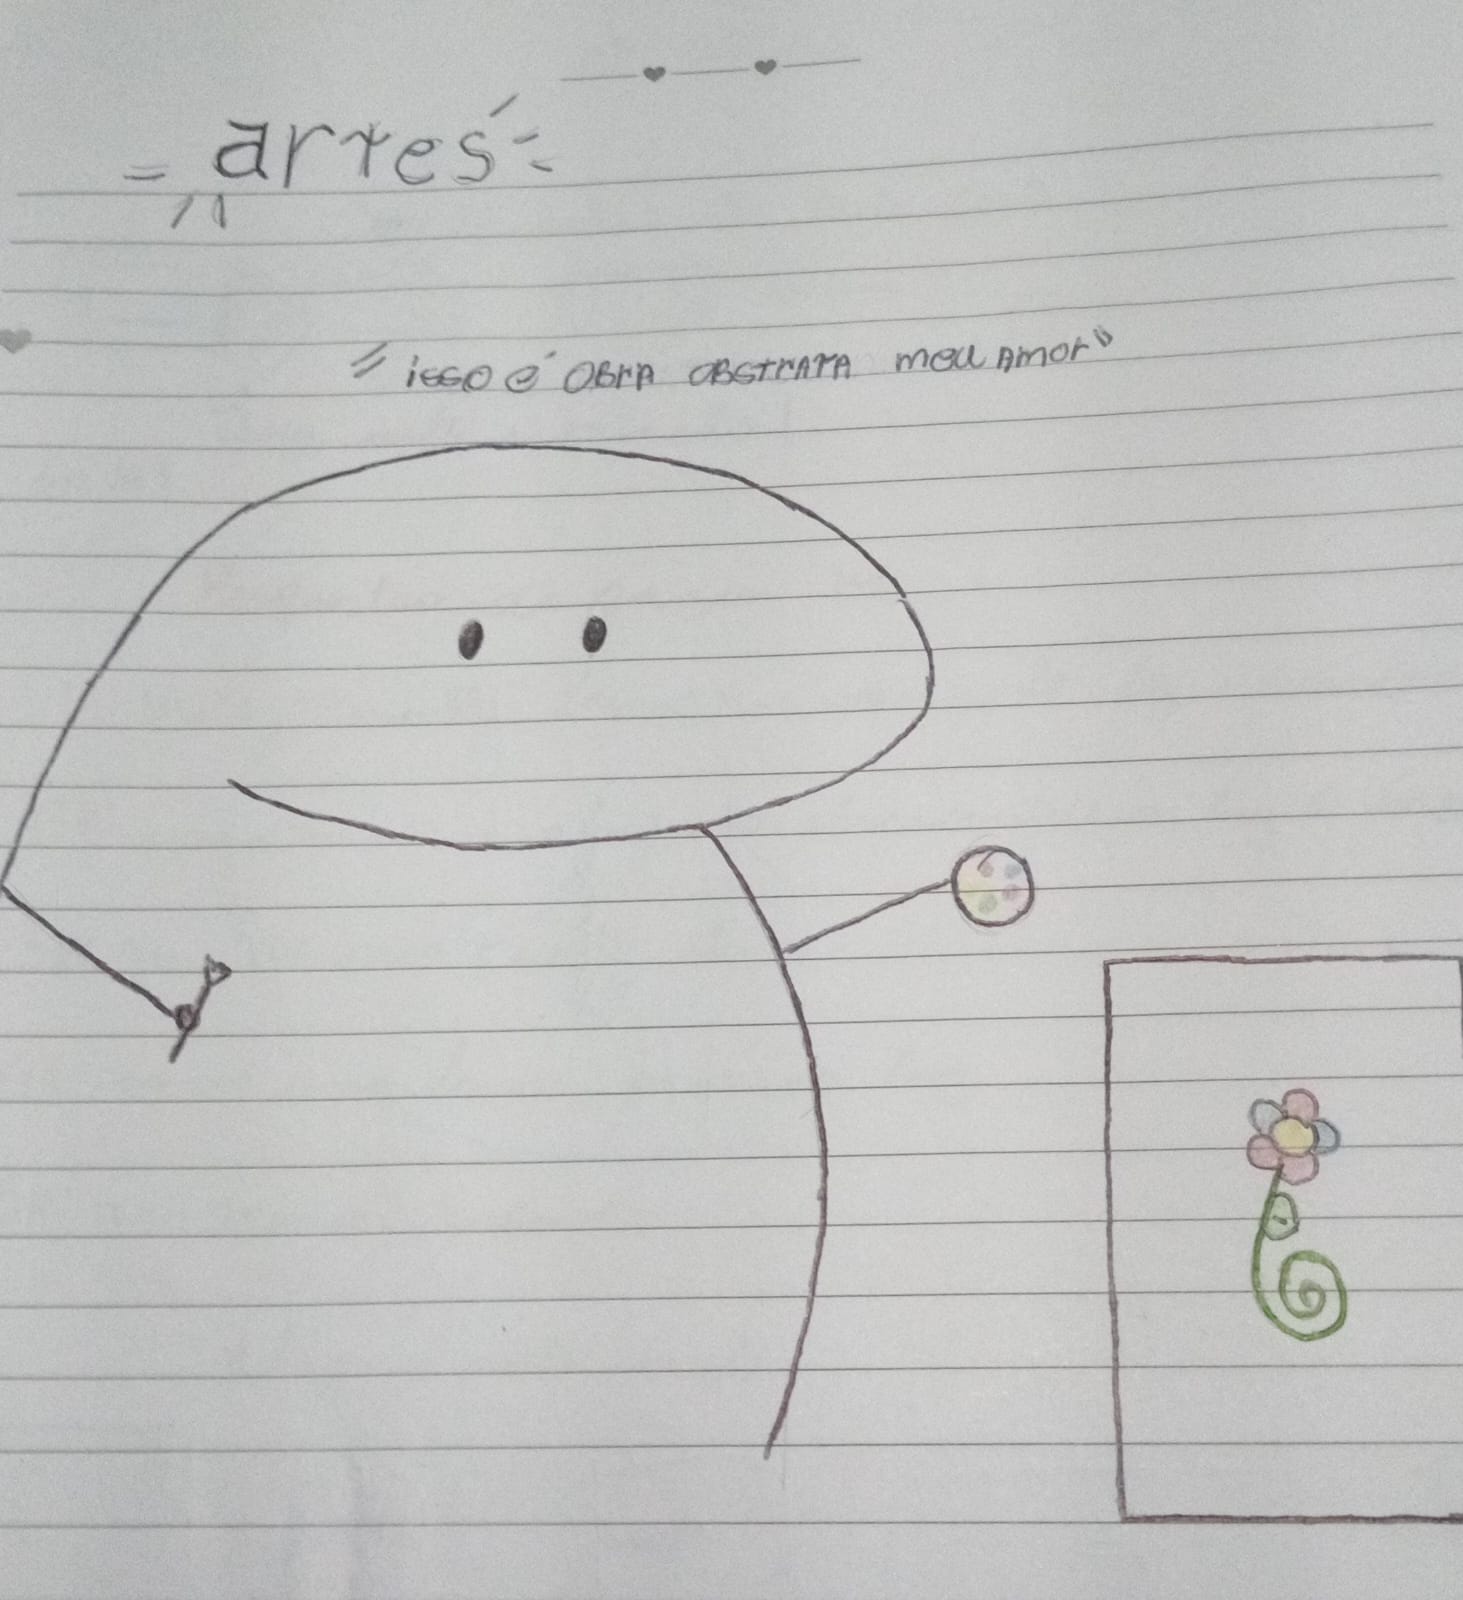 artes
"isso é OBrA OBSTrATA meu Amor"